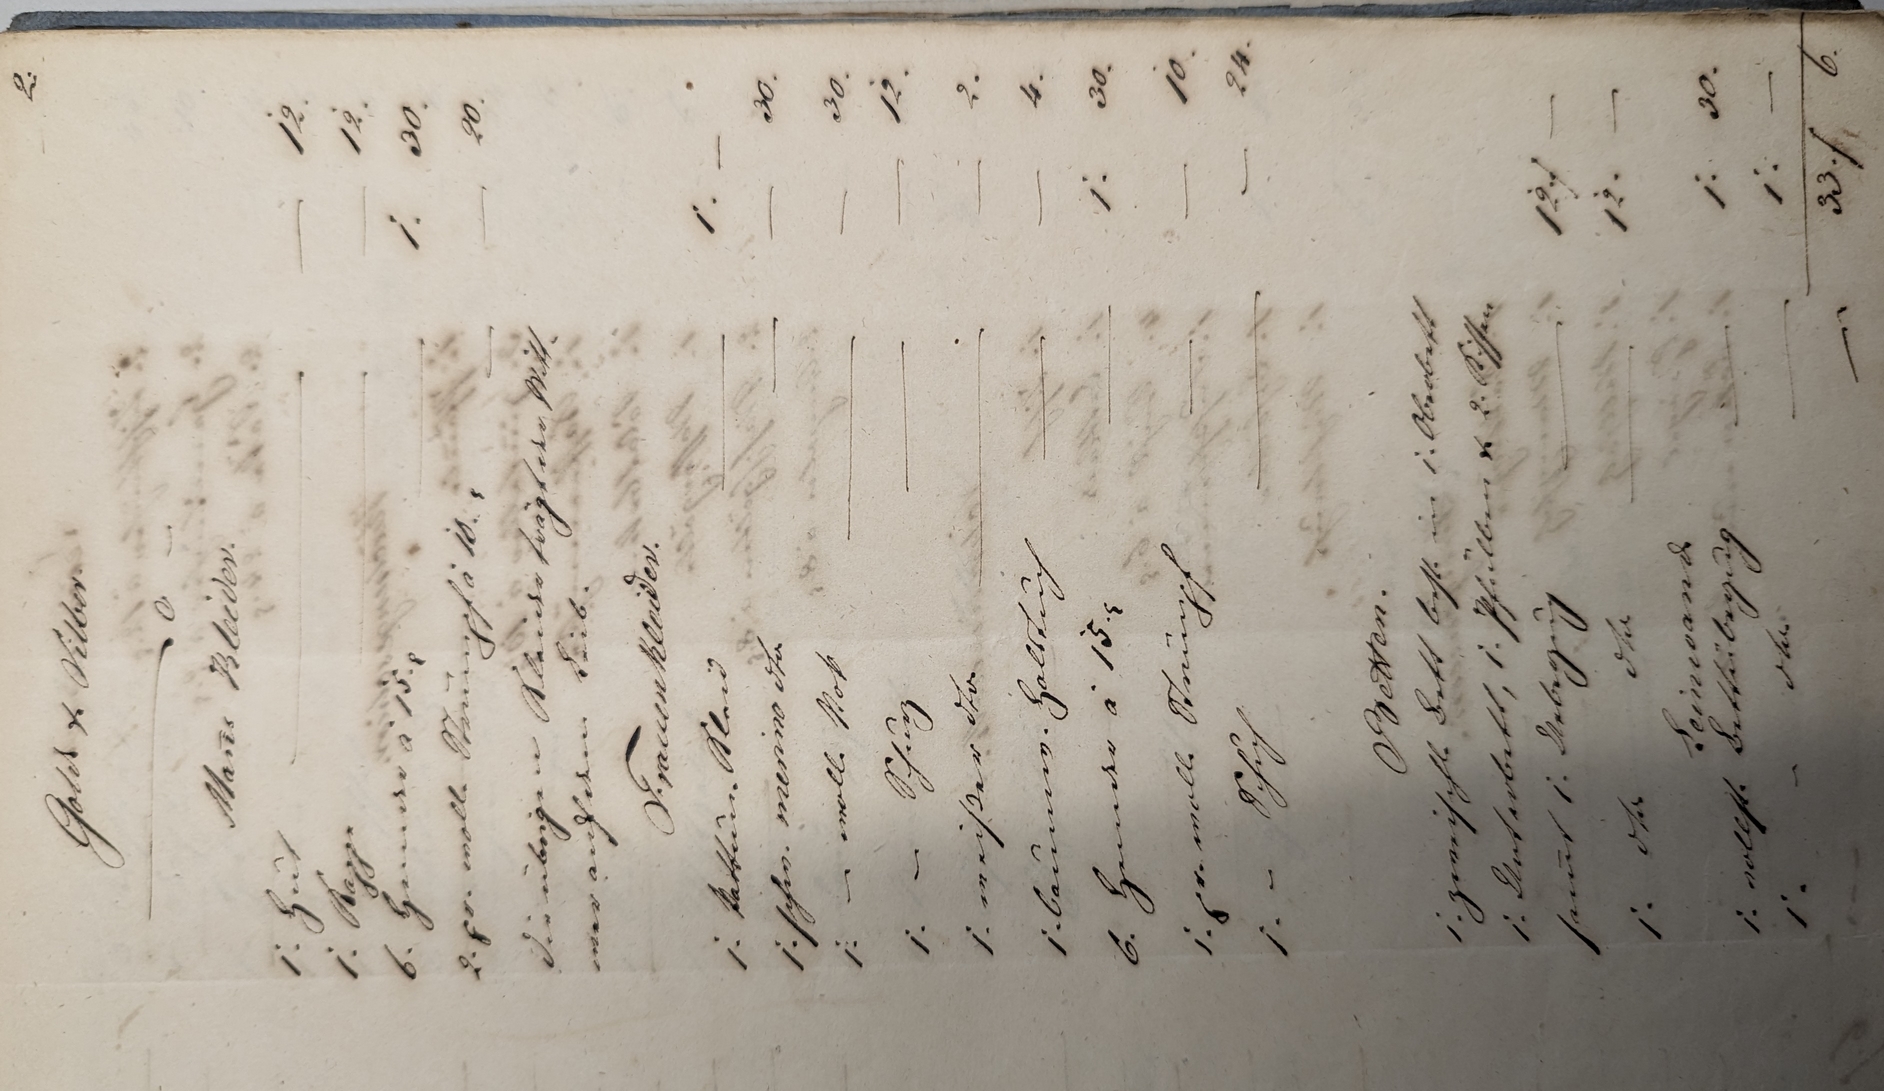 2.
Gold & Silber.
— 0 —
Mañs Kleider.
1. Hut — — 12.
1. Kapp — — 12.
6. Hemder à 15 x — 1. 30.
2. pr. woll. Strümpf à 10. x — — 20.
die übrigen Kleider trägt der Witt-
wer auf dem Leib.
Frauenkleider.
1. kattun. Kleid — 1. —
1. schw. merino dto — — 30.
1. — woll. Rok — — 30.
1. — Schurz — — 12.
1. weißer dto — — 2.
1. baumw. Halstuch — — 4.
6. Hemder à 15. x — 1. 30.
1. pr. woll. Strümpf — — 10.
1. — Schuh — — 24.
Betten.
1. zwischl. Bett best. in 1. Oberbett
1. Unterbett, 1. Pfulben & 2. Kissen
samt 1. Ueberzug — 12. f —
1. dto dto — 12. —
Leinwand
1. Bettüberzug — 1. 30.
1. — dto — 1. —
— 33. f 6.